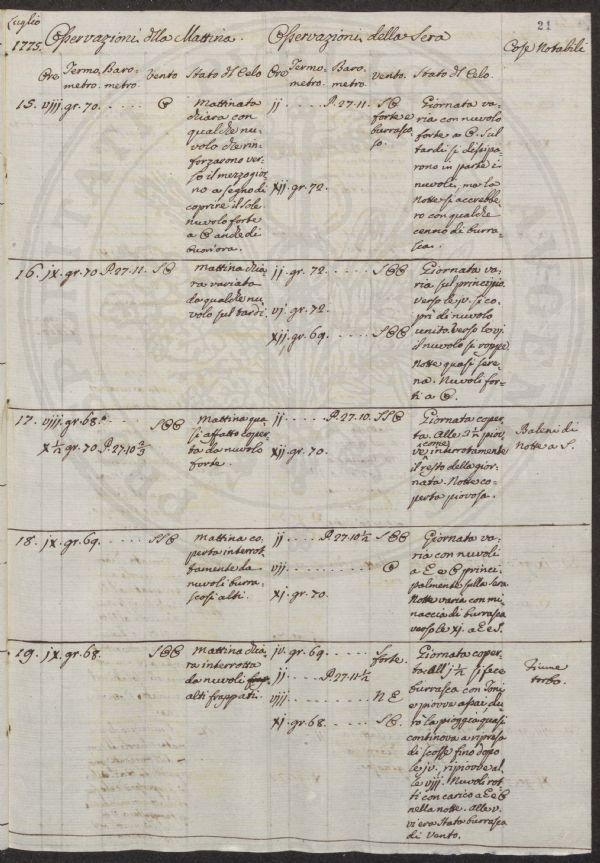 Luglio
1775. Osservazioni dlla Mattina. Osservazioni della Sera 21
Cose Notabili
Ore Termometro. Barometro Vento Stato dl Celo. Ore Termometro. Barometro. Vento. Stato dl Celo.
15. viij. gr. 70. . . . . .
Mattinata
chiara con
qualche nu-
volo che rin-
forzarono ver-
so il mezzogior-
no a segno di
coprire il Sole
nuvolo forte
a
anche di
buon'ora.
jj . . . . . P. 27. 11.
forte e
burrasco-
so.
xjj. gr. 72.
Giornata va-
ria con nuvolo
forte a
Sul
tardi si dissipa-
rono in parte i
nuvoli, ma la
notte si accrebbe-
ro con qualche
cenno di burra-
sca.
16. jx. gr. 70. P. 27. 11.
Mattina chia-
ra variata
da qualche nu-
volo sul tardi.
jj. gr. 72. . . . . .
vj. gr. 72.
xjj. gr. 69. . . . . .
Giornata va-
ria sul principio
verso le jv. si co-
prì di nuvolo
unito. Verso le vj.
il nuvolo si roppe.
Notte quasi sere-
na. Nuvoli for-
ti a
17. viij. gr. 68. . . .
x ½ gr. 70 P. 27. 10 ⅔
Mattina qua-
si affatto coper-
ta da nuvolo
forte.
jj . . . . . P. 27. 10.
xjj. gr. 70.
Giornata coper-
ta. Alle
piov-
ve come interrotamente
il resto della gior-
nata. Notte co-
perta piovosa.
Baleni di
Notte a S.
18. jx. gr. 69. . . . . .
Mattina co-
perta interrot-
tamente da
nuvoli burra-
scosi alti.
jj . . . . . P. 27. 10 ½
vjj . . . . . . .
xj. gr. 70.
Giornata va-
ria con nuvoli
a E e
princi-
palmente sulla sera
Notte varia con mi-
naccia di burrasca
verso le xj. a E e S.
19. jx. gr. 68. . . . . .
Mattina chia-
ra interrotta
da nuvoli
alti frappati.
jv. gr. 69. . . .
forte.
jj . . . . . P. 27. 11 ½
viij . . . . . . . N E
xj. gr. 68. . . . . .
Giornata coper-
ta. All'j ½ si fece
burrasca con Toni
e piovve assai du-
rò la pioggia quasi
continova a ripresa
di scosse fino dopo
le jv. ripiovve al-
le vjjj. Nuvoli rot-
ti con carico a E e
nella notte. Alle v.
vi era stata burrasca
di Vento.
Fiume
torbo.